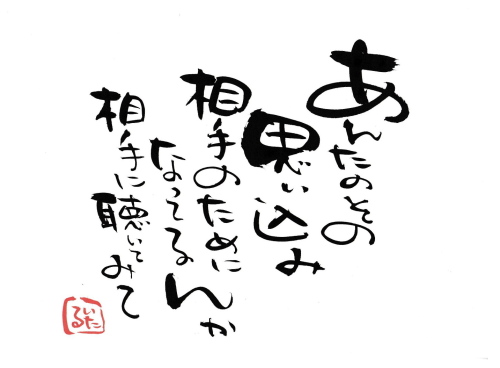 あんたのその
思い込み
相手のために
なってるんか
相手に聴いてみて